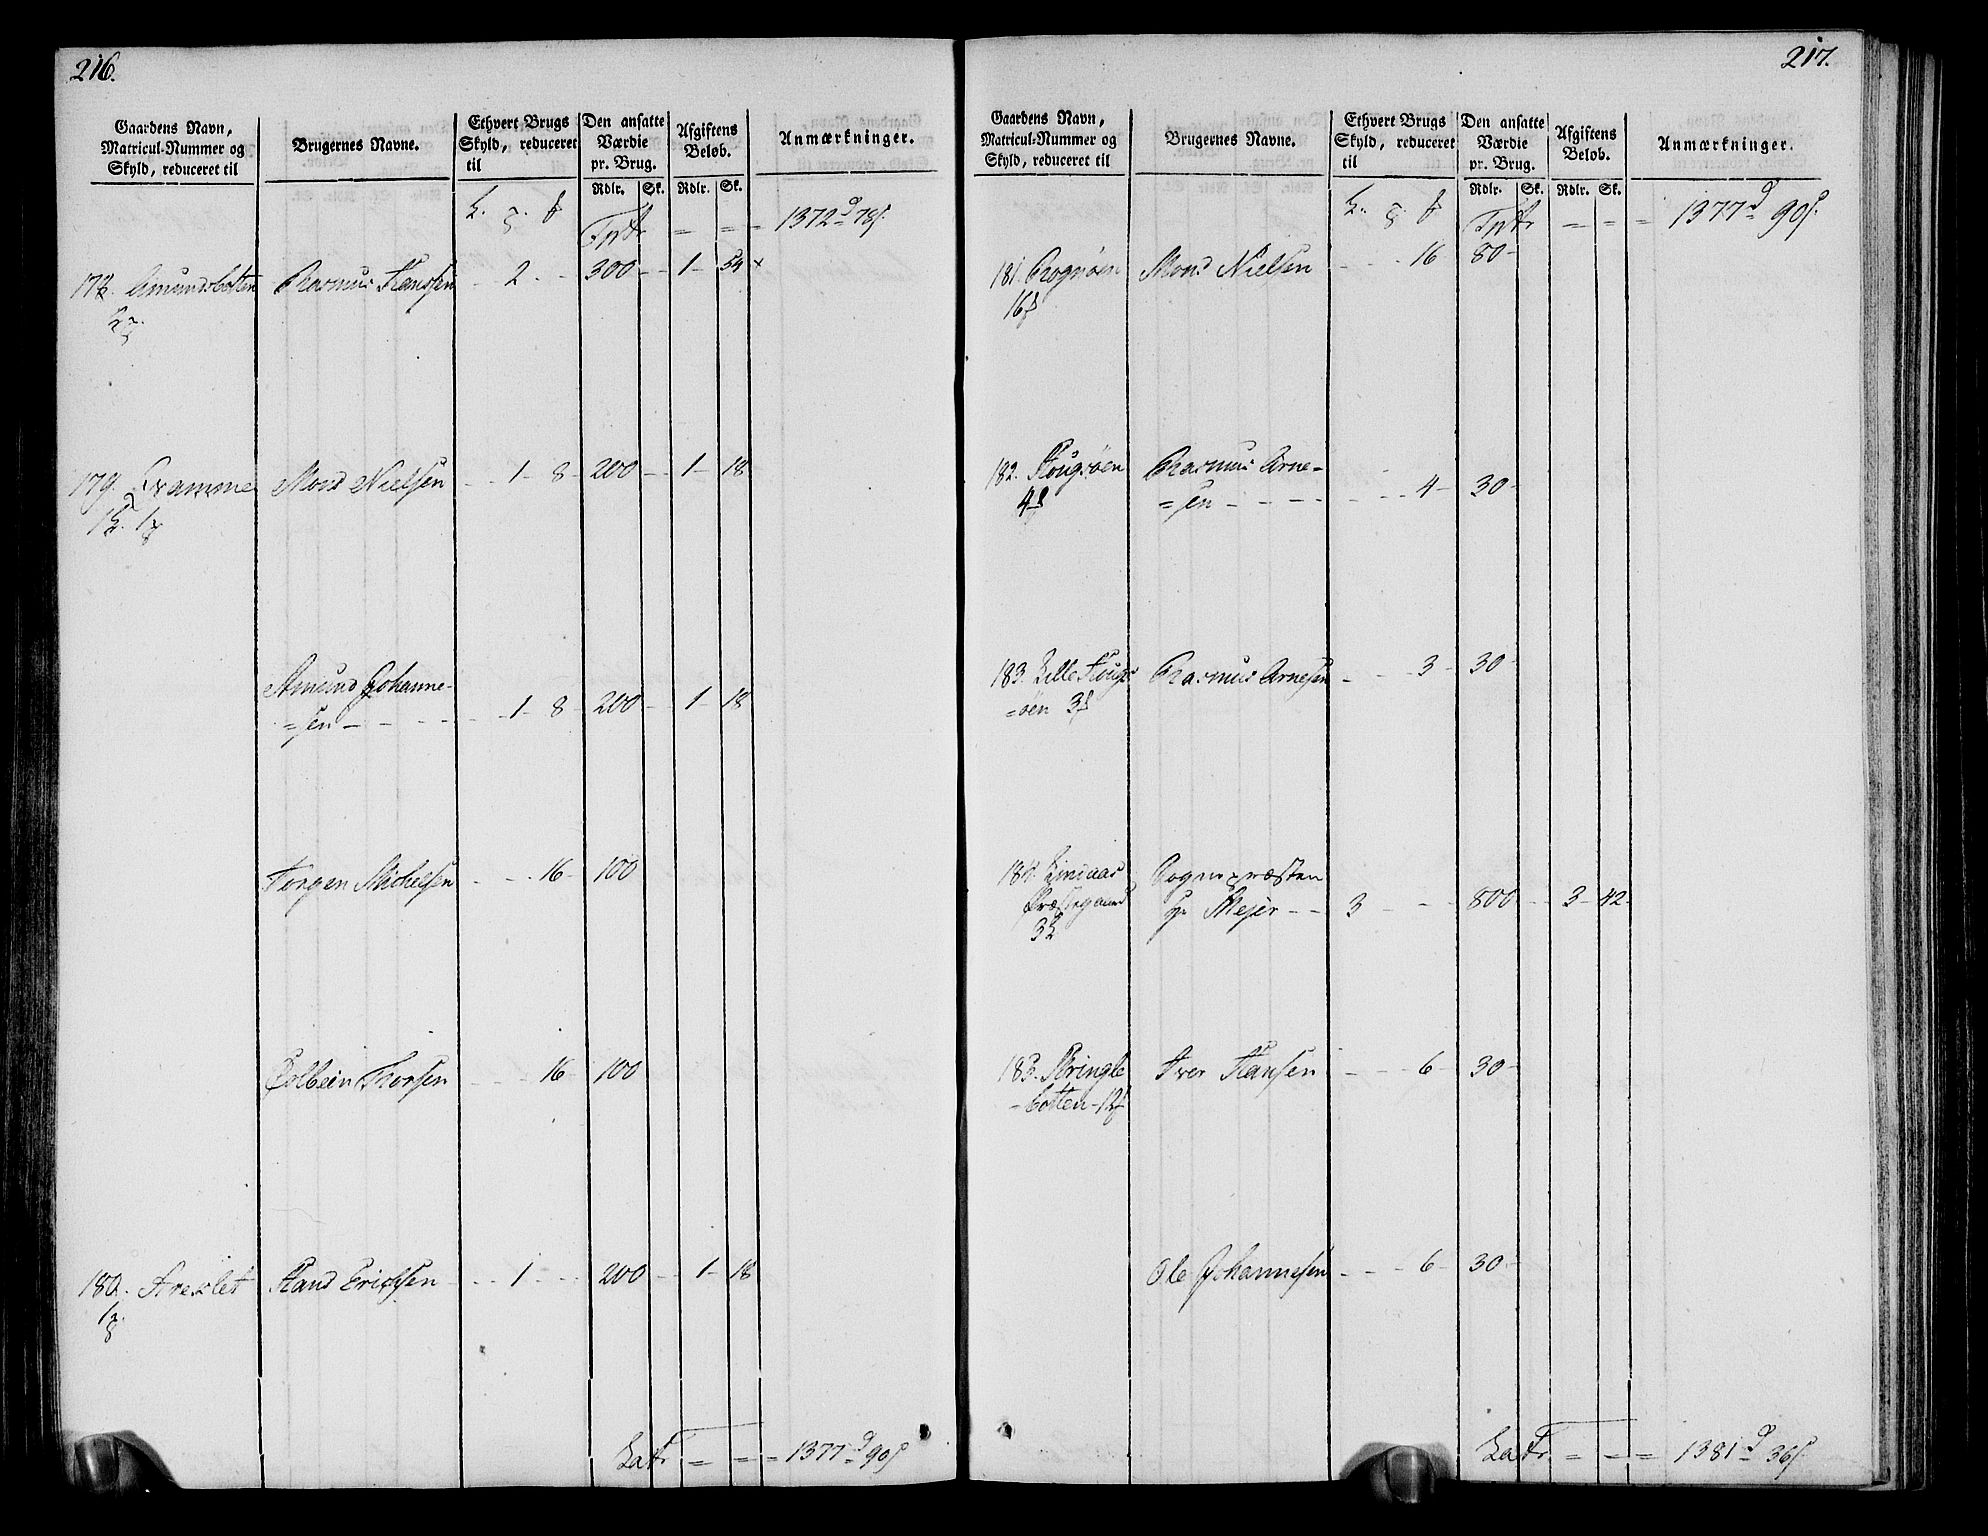 216.
Gaardens Navn, Matricul-Nummer og Skyld, reduceret til
Brugernes Navne.
Ethvert Brugs Skyld, reduceret til
Den ansatte Værdie pr. Brug.
Afgiftens Beløb.
Anmærkninger.
Rdlr. Sk. Rdlr. Sk.
Tptr = = = 1372 d 78 s.
178. Amundsbotten Rasmus Hanssen 2 - 300 - 1 - 54 x
179. Framme Mons Nielsen 1 - 8 - 200 - 1 - 18
Amund Johanne-
=sen - 1 - 8 - 200 - 1 - 18
Torgen Michelsen 16 - 100
Colbein Thorsen 16 - 100
180. Areslet Hans Erichsen 1 - 200 - 1 - 18
Latr = = = 1377 d 90 s
217.
Gaardens Navn, Matricul-Nummer og Skyld, reduceret til
Brugernes Navne.
Ethvert Brugs Skyld, reduceret til
Den ansatte Værdie pr. Brug.
Afgiftens Beløb.
Anmærkninger.
Rdlr. Sk. Rdlr. Sk.
Tptr = = = 1377 d 90 s.
181. Rognøen Mons Nielsen 16 80 -
16
182. Skougsøen Rasmus Arne=
4 =sen - 4 - 30 -
183. Lille Skougs Rasmus Arnesen 3 - 30 -
=øen 3
184. Lindaas Sognepræsten
Præstegaard Hr Mejer - 3 - 800 - 3 - 42 -
3
185. Kringle Iver Hansen 6 - 30 -
-botten - 12
Ole Johannesen 6 - 30 -
Latr = = = 1381 d 36 s.